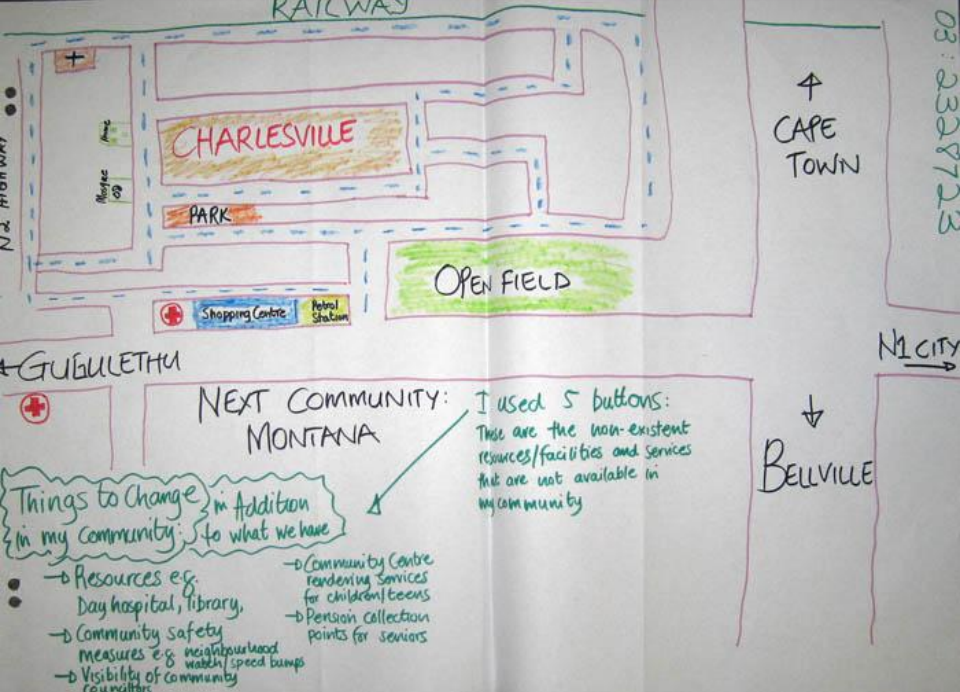 RAILWAY
03:2328723
N2 HIGHWAY
Home
Mosque
CHARLESVILLE
PARK
CAPE
TOWN
OPEN FIELD
Shopping Centre
Petrol
Station
N1 CITY
GUGULETHU
NEXT COMMUNITY:
MONTANA
I used 5 buttons:
These are the non-existent
resources/facilities and services
that are not available in
my community
BELLVILLE
Things to Change in Addition
in my community: to what we have
→ Resources e.g.
Day hospital, library,
→ Community safety
measures e.g. neighbourhood
watch/speed bumps
→ Visibility of community
councillors
→ Community Centre
rendering services
for children/teens
→ Pension collection
points for seniors